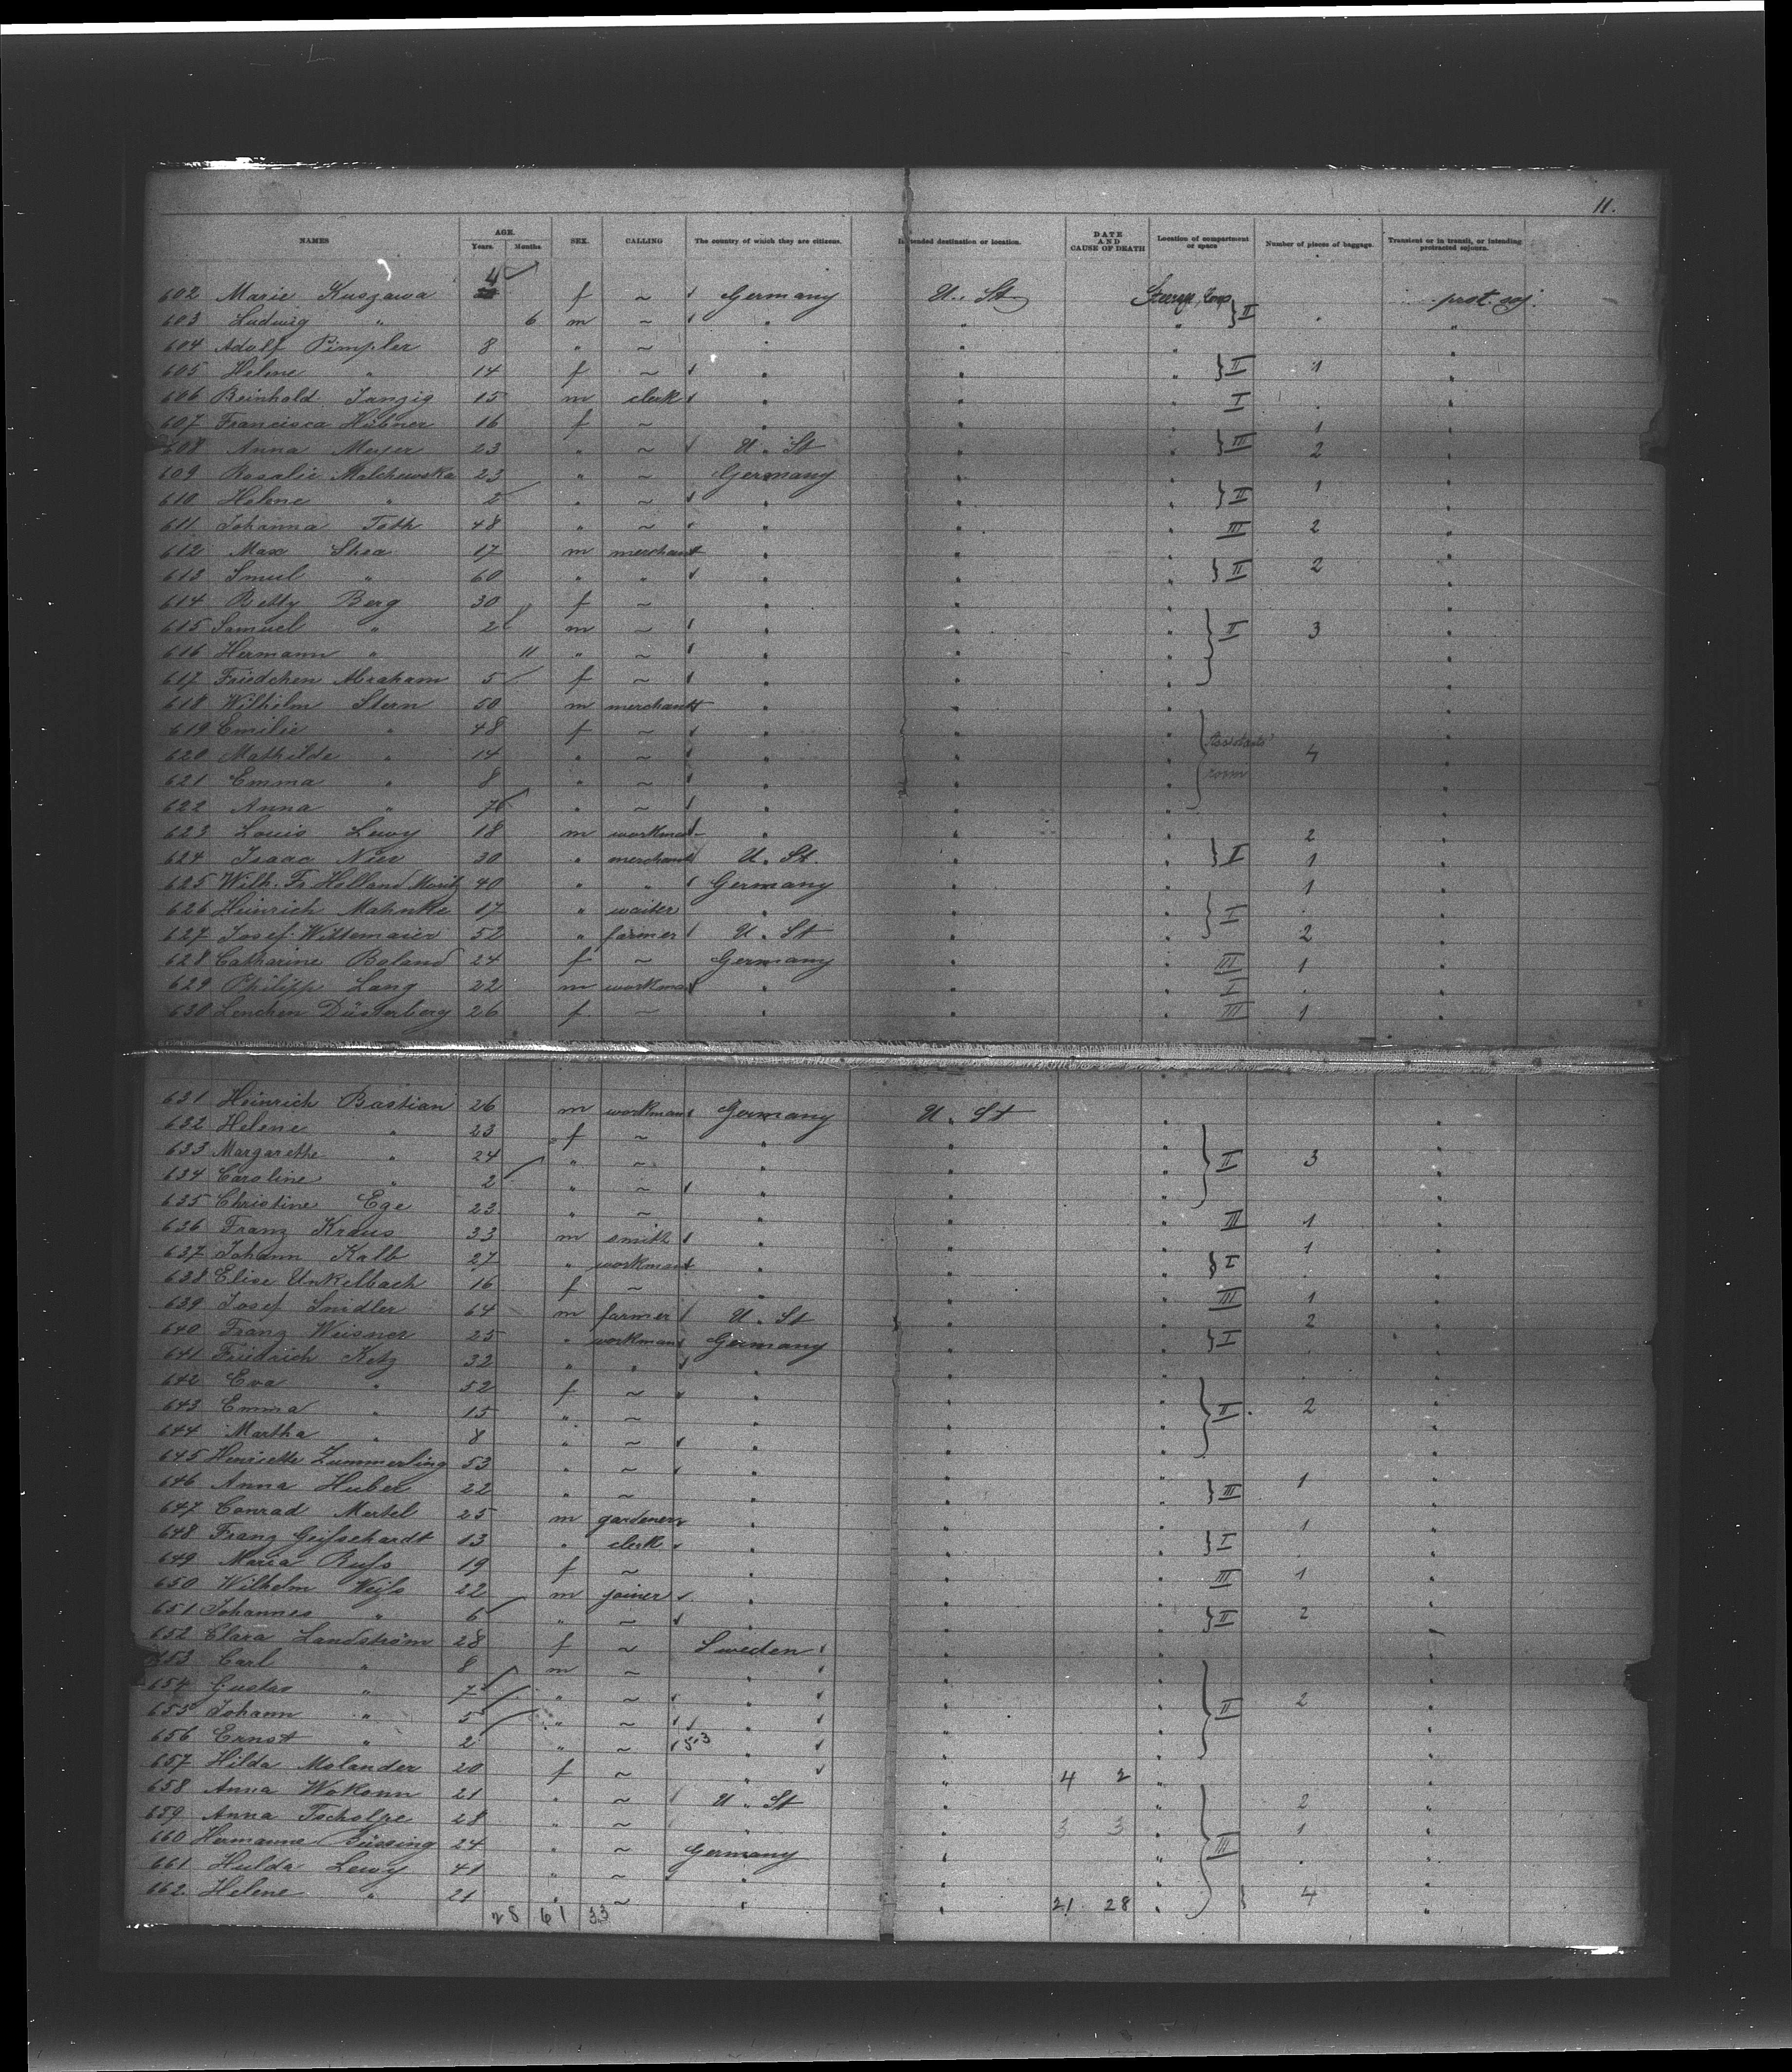 11.
NAMES AGE. Years. Months SEX. CALLING The country of which they are citizens. Intended destination or location. DATE AND CAUSE OF DEATH Location of compartment or space Number of pieces of baggage. Transient or in transit, or intending protracted sojourn.
602 Marie Kuszawa 4 f ~ Germany U. St II prot. soj.
603 Ludwig " 6 m ~ " " " " "
604 Adolf Pimpler 8 " ~ " " " "
605 Helene " 14 f ~ " " " II 1 "
606 Reinhold Janzig 15 m clerk " " " I . "
607 Francisca Hübner 16 f ~ " " " 1 "
608 Anna Meyer 23 " ~ U. St " " III 2 "
609 Rosalie Malchewska 23 " ~ Germany " " "
610 Helene " 2 " ~ " " " II 1 "
611 Johanna Toth 48 " ~ " " " III 2 "
612 Max Shea 17 m merchant " " " "
613 Smul " 60 " " " " " II 2 "
614 Betty Berg 30 f ~ " " " "
615 Samuel " 2 m ~ " " " I 3 "
616 Hermann " 11 " ~ " " " "
617 Friedchen Abraham 5 f ~ " " " "
618 Wilhelm Stern 50 m merchant " " " "
619 Emilie " 48 f ~ " " " "
620 Mathilde " 14 " ~ " " " room 4 "
621 Emma " 8 " ~ " " " "
622 Anna " 7 " ~ " " " "
623 Louis Lewy 18 m workman " " " 2 "
624 Isaac Nier 30 " merchant U. St. " " I 1 "
625 Wilh. Fr. Holland Moritz 40 " " Germany " " 1 "
626 Heinrich Mahnke 17 " waiter " " " I . "
627 Josef Wittemaier 52 " farmer U. St " " 2 "
628 Catharine Boland 24 f ~ Germany " " III 1 "
629 Philipp Lang 22 m workman " " " I . "
630 Lenchen Düsterberg 26 f ~ " " " III 1 "
631 Heinrich Bastian 26 m workman Germany U. St " "
632 Helene " 23 f ~ " " " "
633 Margarethe " 24 " ~ " " " II 3 "
634 Caroline " 2 " ~ " " " "
635 Christine Ege 23 " ~ " " " III 1 "
636 Franz Kraus 33 m smith " " " 1 "
637 Johann Kalb 27 " workman " " " I . "
638 Elise Unkelbach 16 f ~ " " " III 1 "
639 Josef Snidler 64 m farmer U. St " " 2 "
640 Franz Weisner 25 " workman Germany " " I . "
641 Friedrich Ketz 32 " " " " " . "
642 Eva " 52 f ~ " " " "
643 Emma " 15 " ~ " " " II 2 "
644 Martha " 8 " ~ " " " "
645 Henriette Zummerling 53 " ~ " " " 1 "
646 Anna Huber 22 " ~ " " " III "
647 Conrad Mertel 25 m gardener " " " 1 "
648 Franz Geisschardt 13 " clerk " " " I . "
649 Maria Russ 19 f ~ " " " III 1 "
650 Wilhelm Weiss 22 m joiner " " " "
651 Johannes " 6 " ~ " " " II 2 "
652 Clara Landström 28 f ~ Sweden " " "
653 Carl " 8 m ~ " " " "
654 Gustav " 7 " ~ " " " II 2 "
655 Johann " 5 " ~ " " " "
656 Ernst " 2 " ~ 5.3 " " " "
657 Hilda Molander 20 f ~ " " 4 2 "
658 Anna Wokonn 21 " ~ U. St " " 2 "
659 Anna Tscholpe 28 " ~ " " 3 3 " 1 "
660 Hermanne Büssing 24 " ~ Germany " " III . "
661 Hulda Lewy 41 " ~ " " " "
662 Helene " 21 " ~ " " 21 28 " 4 "
28 61 33